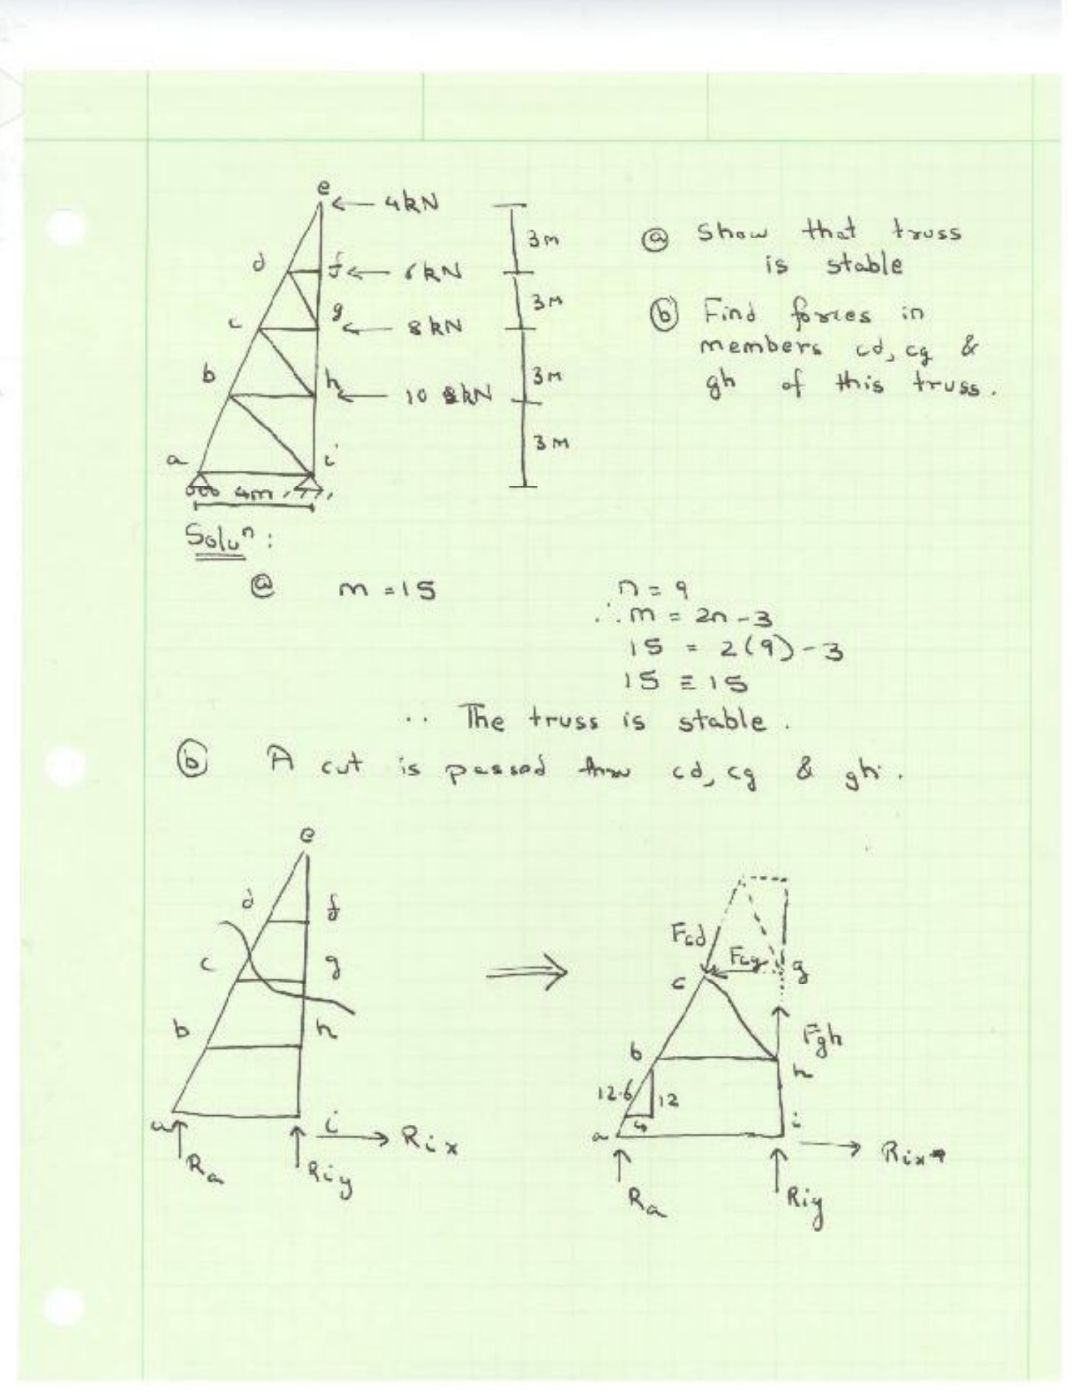 e
← 4kN
3m
d
f ← 6kN
3m
c
g ← 8kN
3m
b
h ← 10 kN
3m
a
i
4m
ⓐ Show that truss
is stable
ⓑ Find forces in
members cd, cg &
gh of this truss.
Soluⁿ:
ⓐ m = 15
n = 9
∴ m = 2n - 3
15 = 2(9) - 3
15 ≡ 15
∴ The truss is stable.
ⓑ A cut is passed thru cd, cg & gh.
e
d
f
c
g
b
h
a
i
Ra
Riy
→ Rix
⇒
Fcd
Fcg
g
c
Fgh
b
h
12.6
12
4
a
i
Ra
Riy
→ Rix